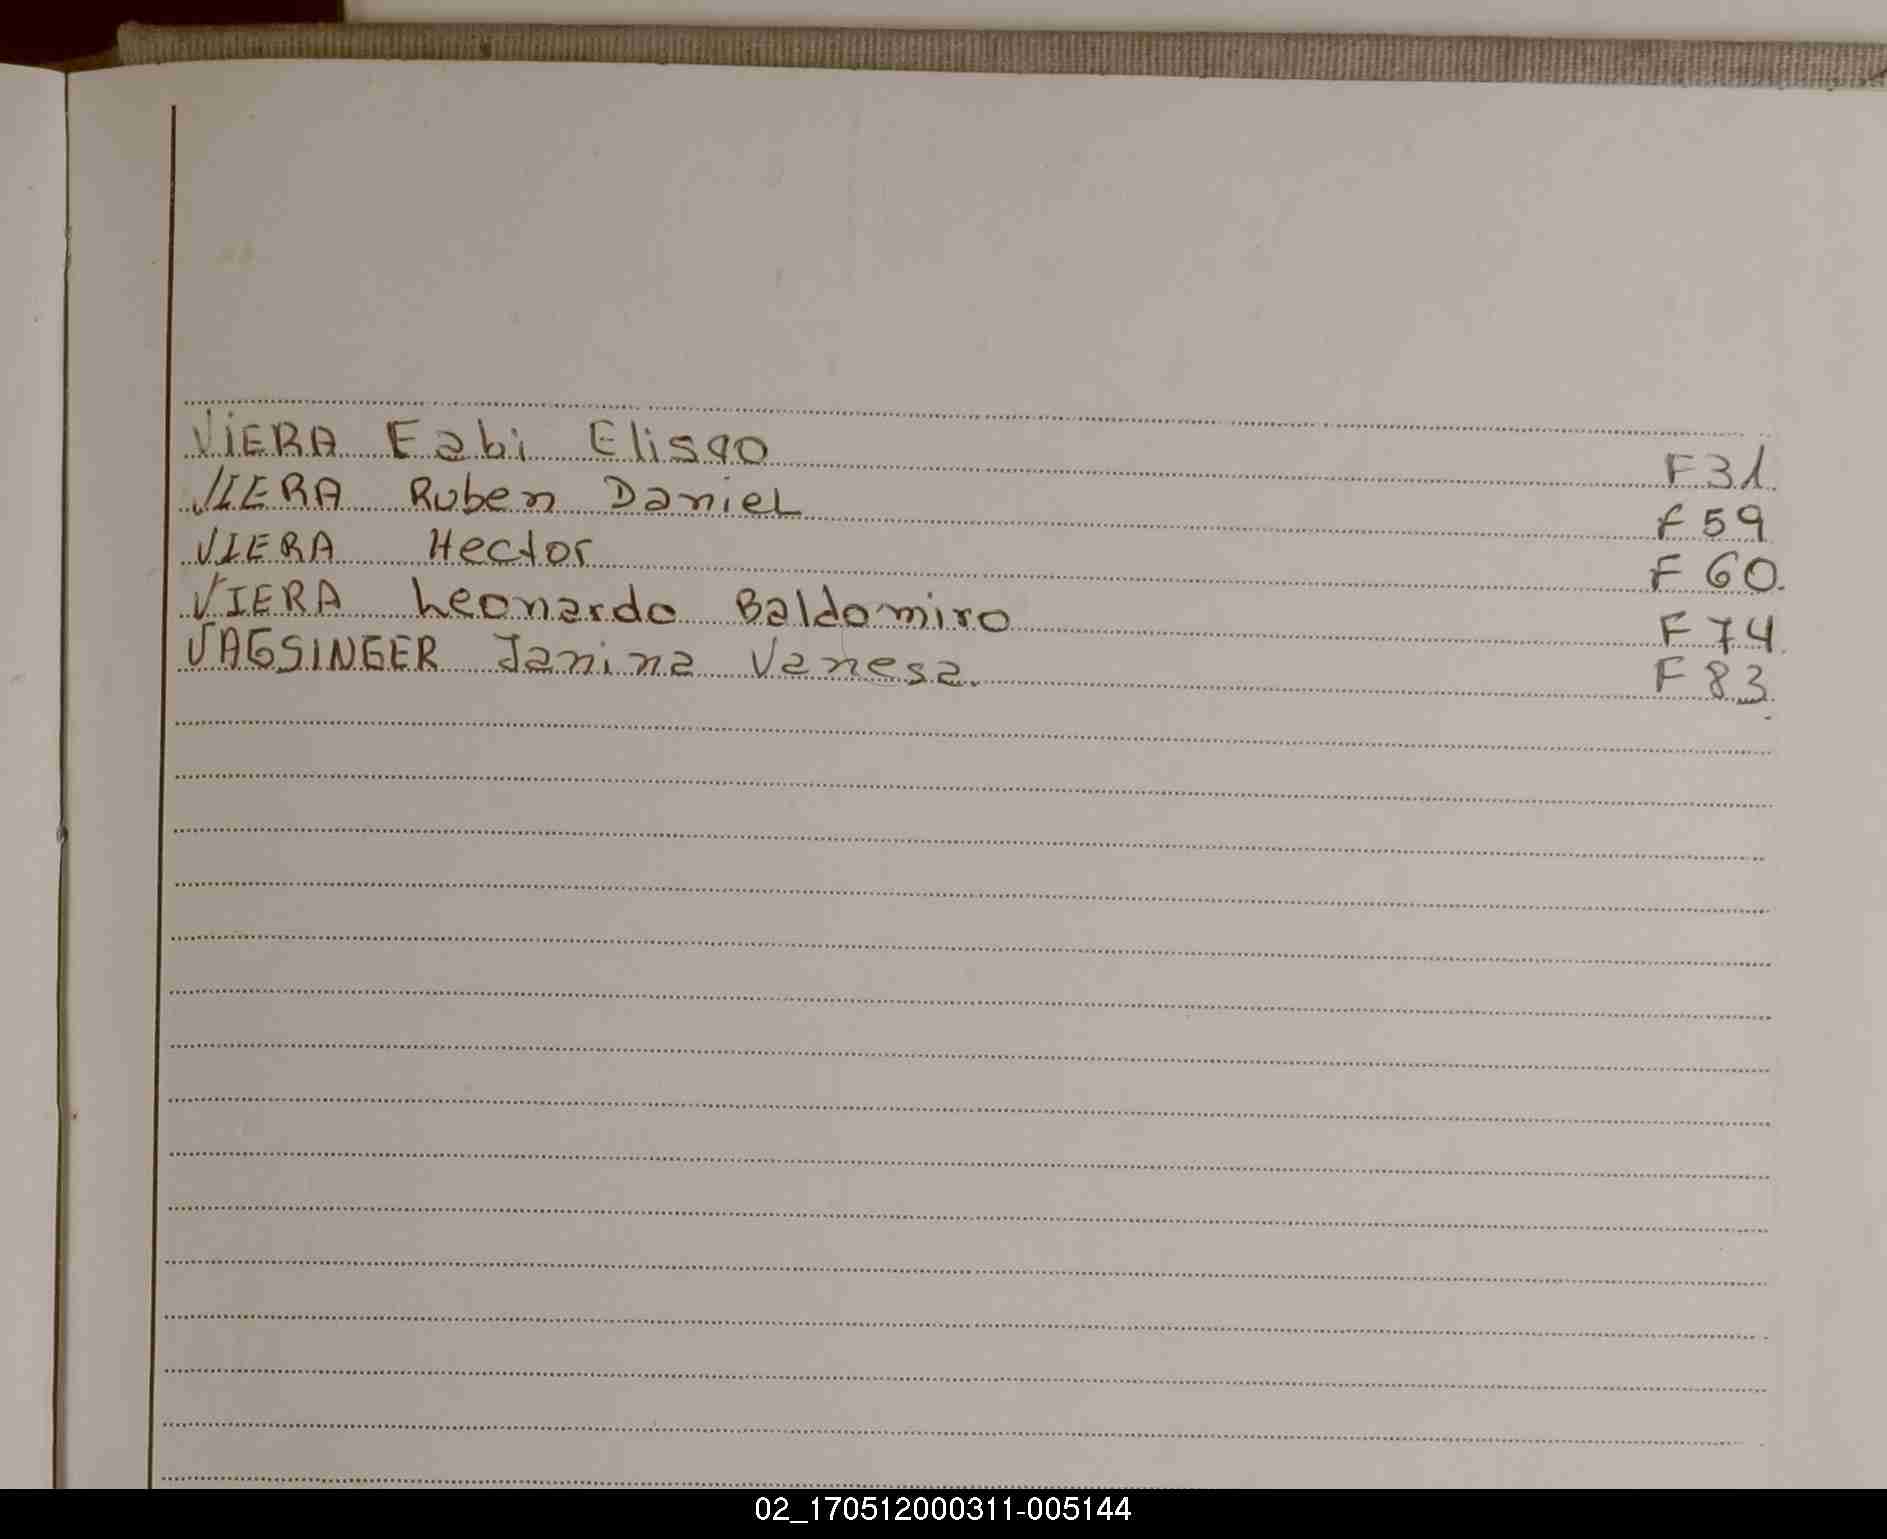 VIERA Eabi Elisao F31
VIERA Ruben Daniel F59
VIERA Hector F60.
VIERA Leonardo Baldomiro F74
VAGSINGER Janina Vanesa. F83
02_170512000311-005144